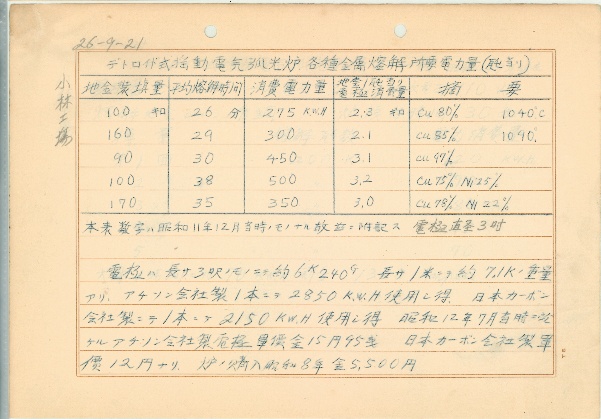 26-9-21
小林工場
デトロイド式揺動電気弧光炉各種金属熔解所要電力量(瓲当り)
地金装填量 平均熔解時間 消費電力量 地金1瓲当り電極消費量 摘 要
100 瓩 26 分 275 K.W.H 2.3 瓩 Cu 80% 1040°C
160 29 300 2.1 Cu 85% 1090.
90 30 450 3.1 Cu 97%
100 38 500 3.2 Cu 75% Ni 25%
170 35 350 3.0 Cu 78% Ni 22%
本表数字ハ昭和11年12月当時ノモノナル故並ニ附記ス 電極直径3吋
電極ハ長サ3呎ノモノニテ約6K240g 長サ1米ニテ約7.1K.重量
アリ. アチソン会社製1本ニテ2850 K.W.H使用シ得 日本カーボン
会社製ニテ1本ニテ2150 K.W.H使用シ得 昭和12年7月当時ニ於
ケルアチソン会社製電極単價金15円95銭 日本カーボン会社製單
價12円ナリ. 炉ノ購入昭和8年金5,500円